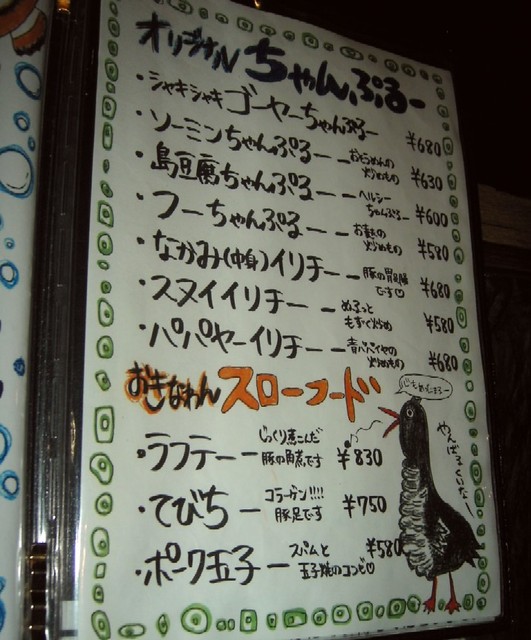 オリジナル ちゃんぷるー
・シャキシャキ ゴーヤーちゃんぷるー ¥680
・ソーミンちゃんぷるー ー おそうめんの炒めもの ¥630
・島豆腐ちゃんぷるー ー ヘルシーちゃんぷるー ¥600
・フーちゃんぷるー ー お麩の炒めもの ¥580
・なかみ(中身)イリチー ー 豚の胃腸です♡ ¥680
・スヌイイリチー ー ぬるっともずく炒め ¥580
・パパヤーイリチー ー 青パパイヤの炒めもの ¥680
おきなわん スローフード
・ラフテー ー じっくり煮こんだ豚の角煮です ¥830
・てびち ー コラーゲン!!!! 豚足です ¥750
・ポーク玉子 ー スパムと玉子焼のコンビ♡ ¥580
やんばるくいなー